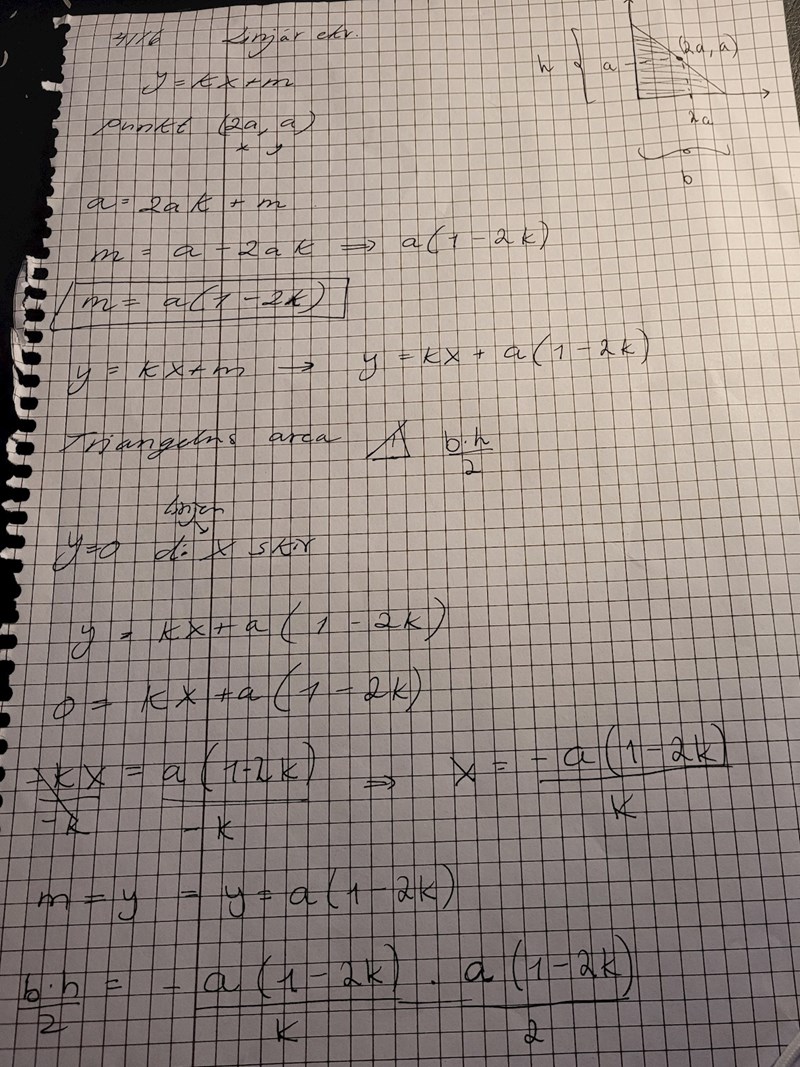 Linjär ekv.
y = kx + m
punkt (2a, a)
x y
h { a (2a, a)
2a
b
a = 2ak + m
m = a - 2ak ⇒ a(1 - 2k)
m = a(1 - 2k)
y = kx + m → y = kx + a(1 - 2k)
Triangelns area b·h/2
linjen
y=0 då x skär
y = kx + a(1 - 2k)
0 = kx + a(1 - 2k)
-kx/-k = a(1-2k)/-k ⇒ x = - a(1 - 2k)/k
m = y = y = a(1 - 2k)
b·h/2 = - a(1 - 2k)/k · a(1 - 2k)/2